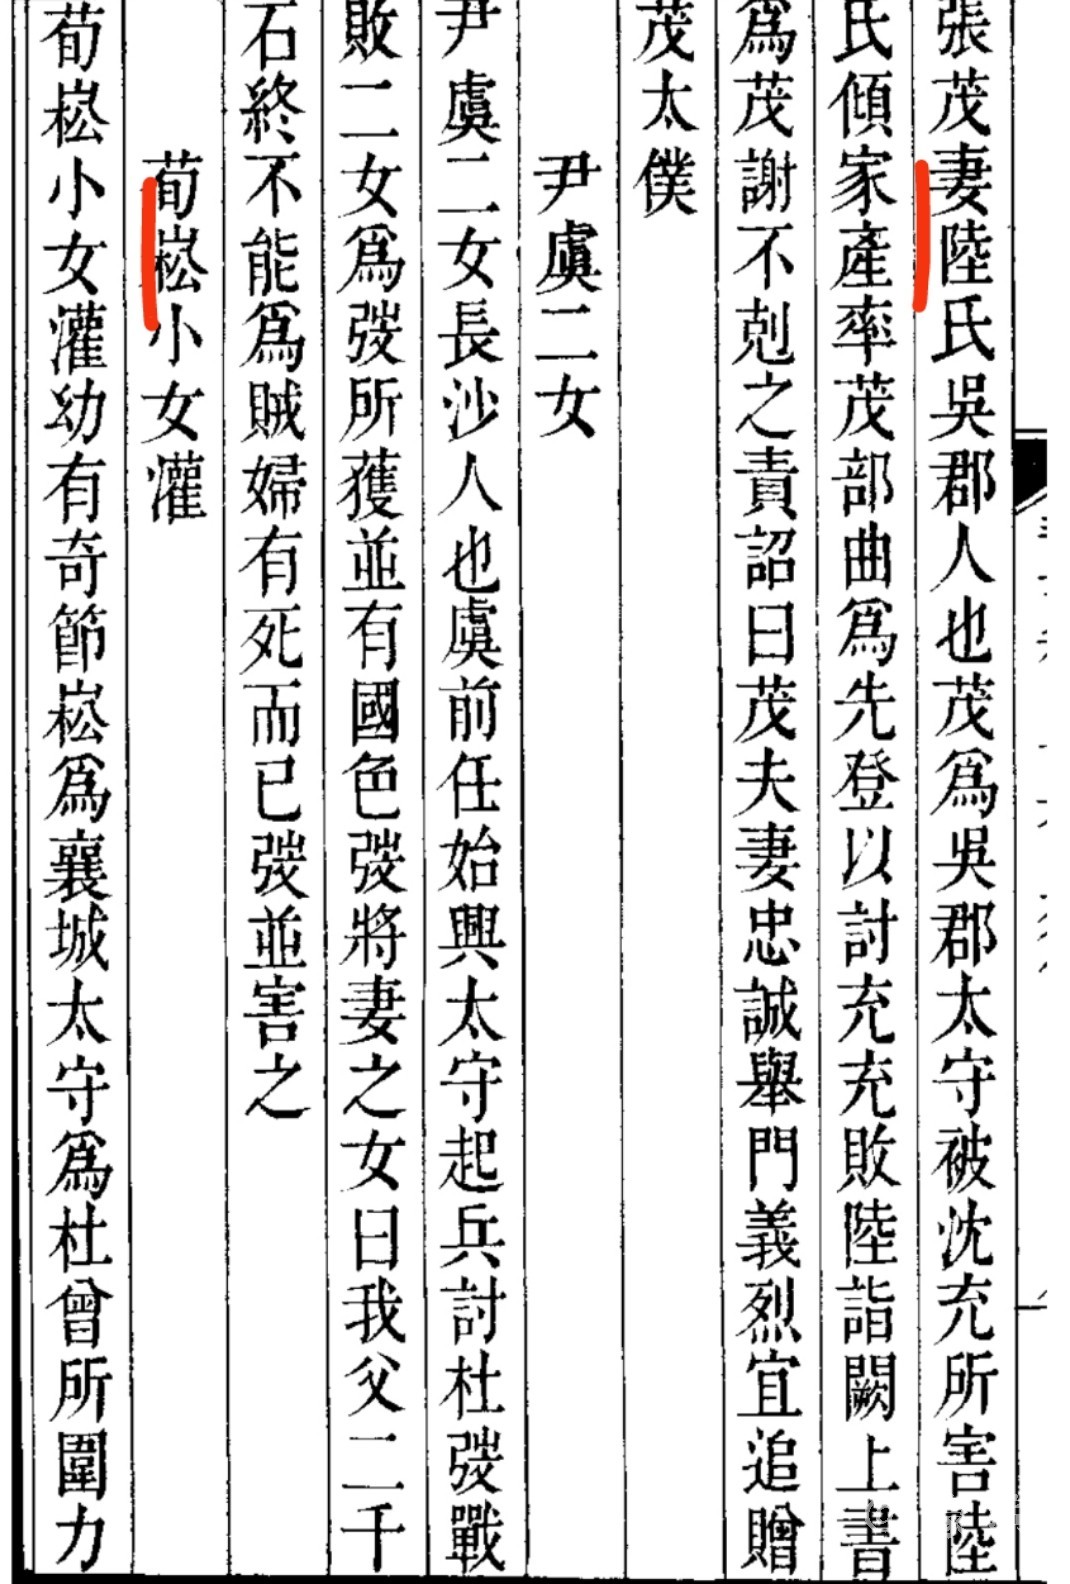 張茂妻陸氏吳郡人也茂爲吳郡太守被沈充所害陸
氏傾家產率茂部曲爲先登以討充充敗陸詣闕上書
爲茂謝不剋之責詔曰茂夫妻忠誠舉門義烈宜追贈
茂太僕
尹虞二女
尹虞二女長沙人也虞前任始興太守起兵討杜弢戰
敗二女爲弢所獲並有國色弢將妻之女曰我父二千
石終不能爲賊婦有死而已弢並害之
荀崧小女灌
荀崧小女灌幼有奇節崧爲襄城太守爲杜曾所圍力